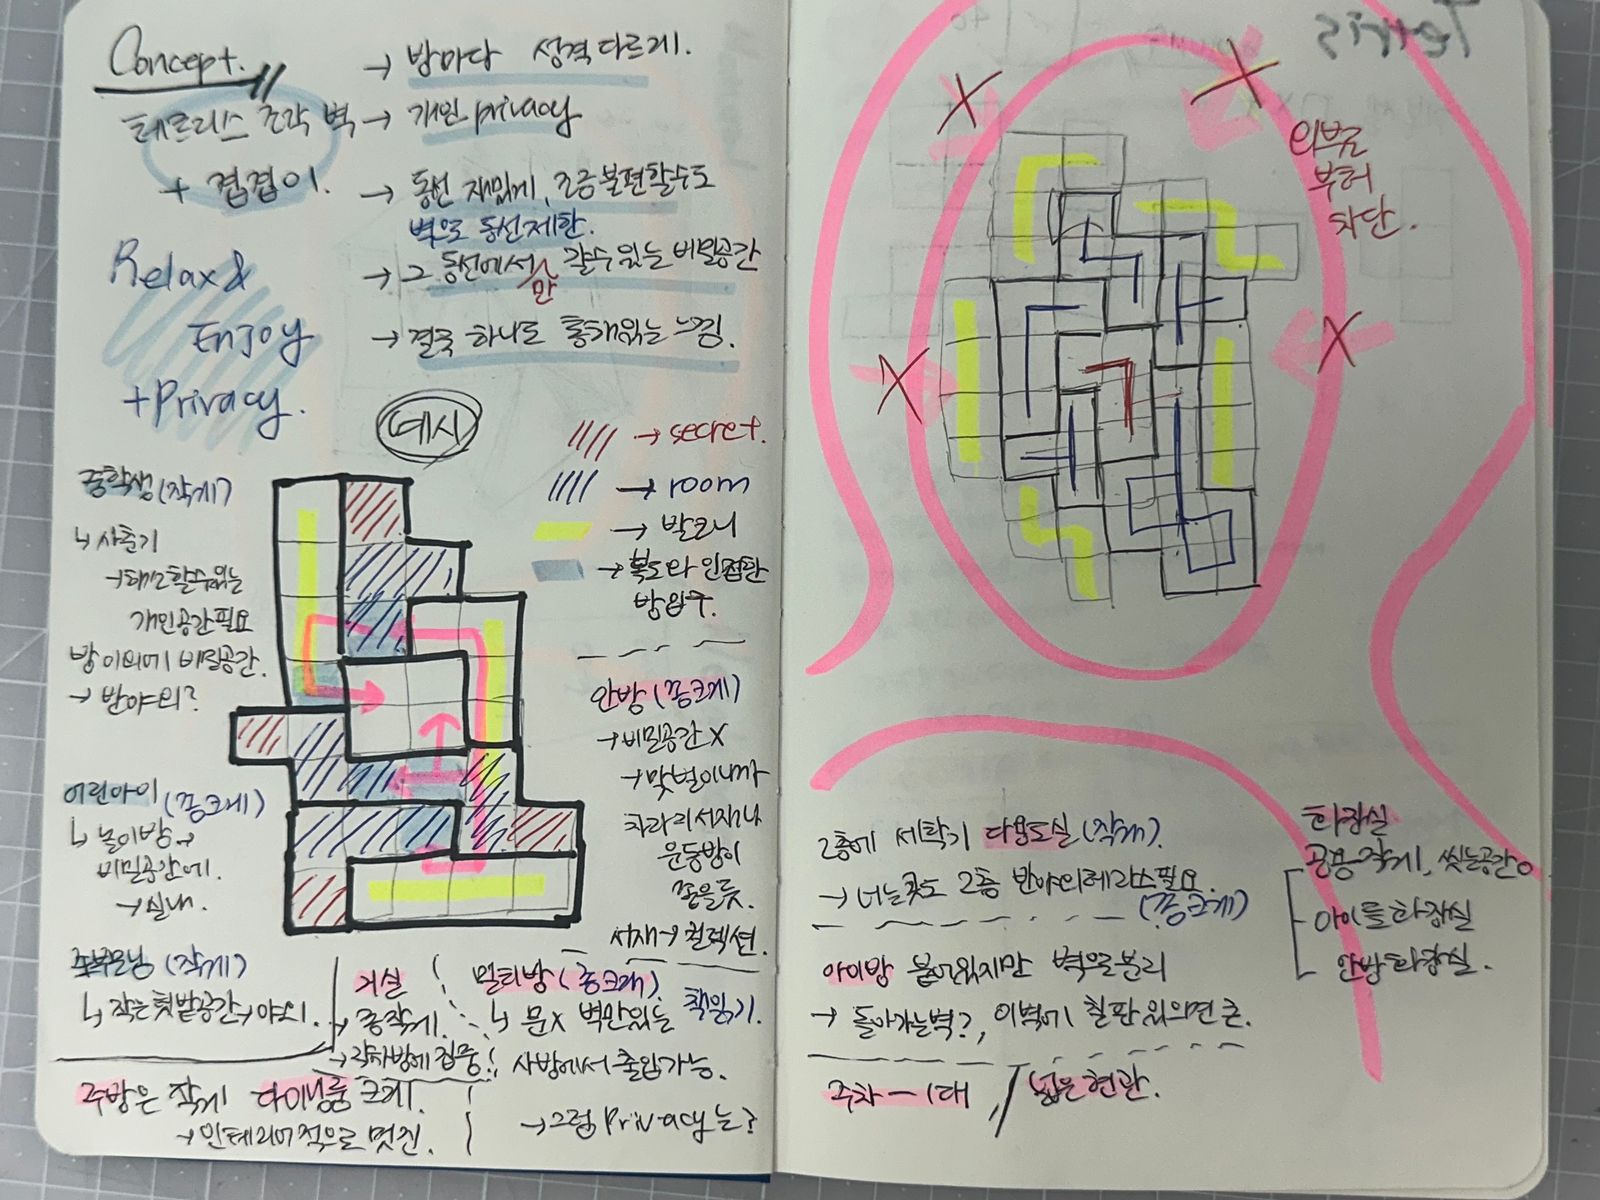 Concept.
→ 방마다 성격 다르게.
테트리스 조각 벽 → 개인 privacy
+ 겹겹이.
→ 동선 재밌게, 조금 불편할수도
벽으로 동선제한.
→ 그 동선에서만 갈수있는 비밀공간
→ 결국 하나로 통해있는 느낌.
Relax &
Enjoy
+ Privacy.
예시
→ secret.
→ room
→ 발코니
→ 복도와 인접한
방 입구.
중학생 (작게)
↳ 사춘기
개인공간필요
방 이외에 비밀공간.
→ 반야외?
어린아이 (중크게)
↳ 놀이방 →
비밀공간에.
→ 실내.
(작게)
↳ 작은 텃밭공간 → 야외.
안방 (중크게)
→ 비밀공간 X
→ 맞벌이니까
차라리 서재나
운동방이
좋을듯.
서재 → 컬렉션.
거실
→ 중작게.
→ 각자방에 집중
멀티방 (중크게)
↳ 문X 벽만있는 책읽기.
사방에서 출입가능.
→ 그럼 Privacy는?
주방은 작게 다이닝룸 크게.
→ 인테리어적으로 멋진.
Tetris
외부로
부터
차단.
2층에 세탁기 다용도실 (작게).
→ 너는곳도 2층 반야외테라스필요.
(중크게)
아이방 붙어있지만 벽으로분리
→ 돌아가는벽?, 이벽에 칠판 있으면 굿.
주차 – 1대 / 넓은 현관.
화장실
공용작게, 씻는공간
아이들화장실
안방화장실.